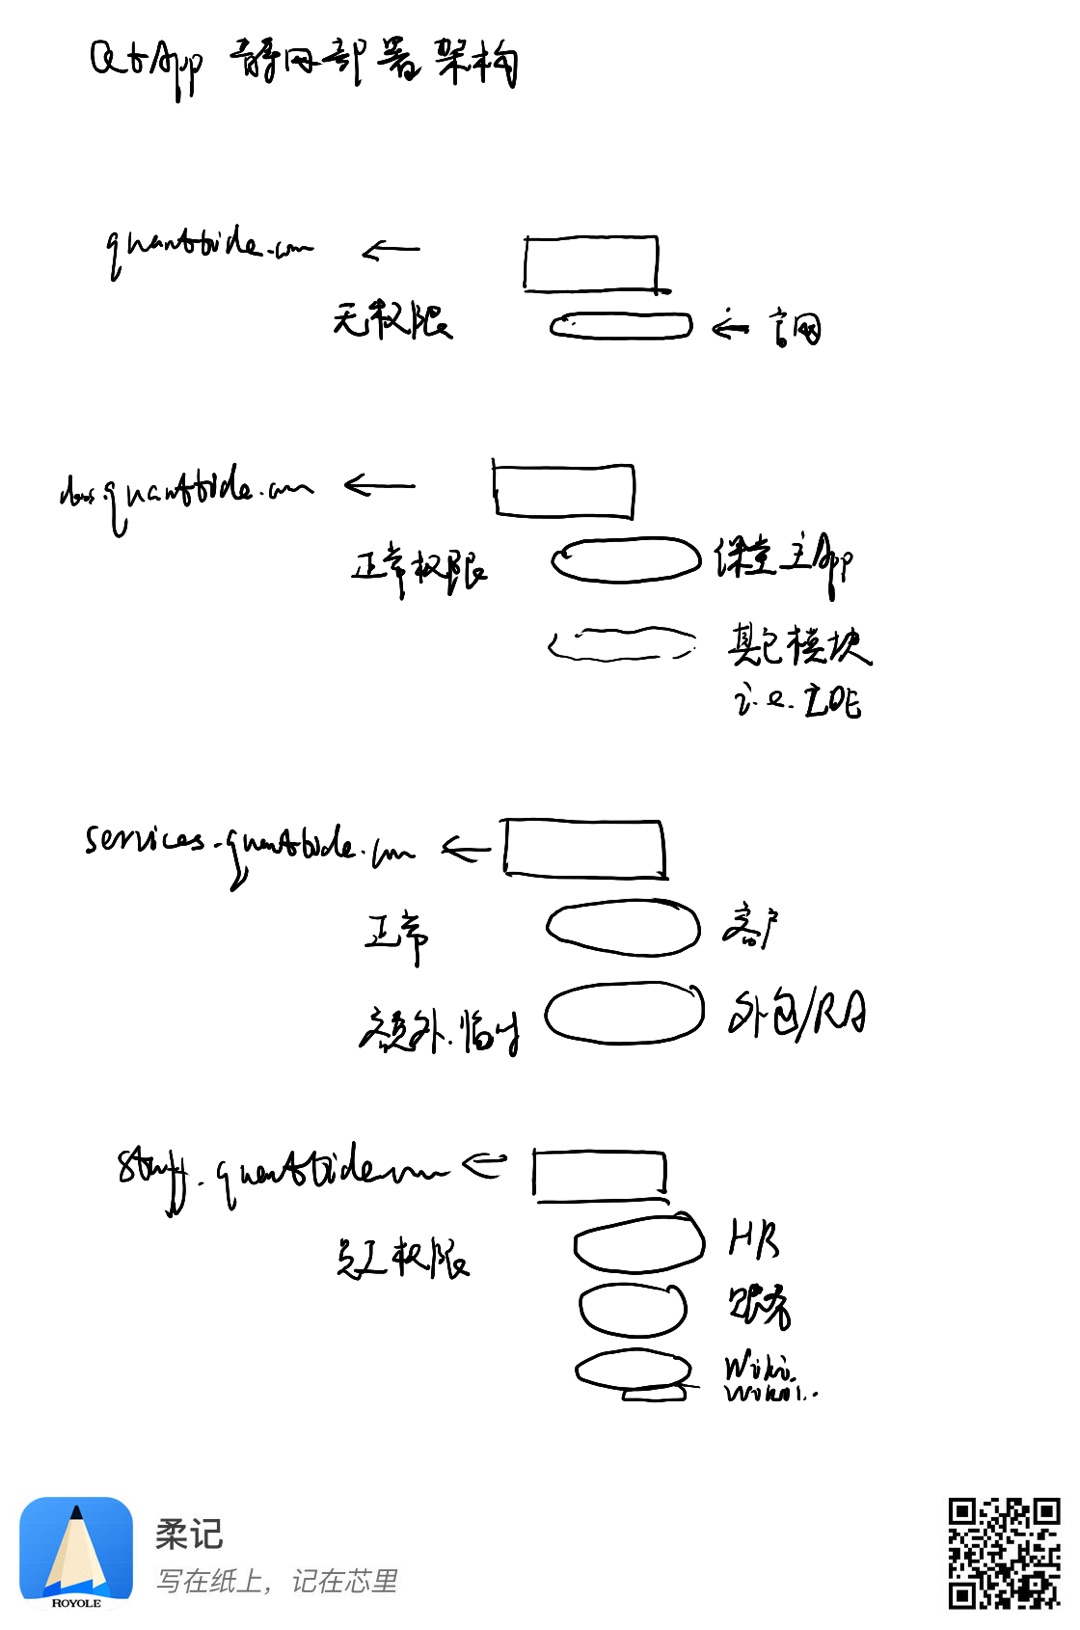 QtApp 静网部署架构
quanttide.com ←
无权限
← 官网
quanttide.com ←
正常权限
课堂主App
其它模块
i.e. IDE
services.quanttide.com ←
正常
客户
额外.临时
外包/RA
staff.quanttide.com ←
员工权限
HR
财务
Wiki.
柔记
写在纸上，记在芯里
ROYOLE